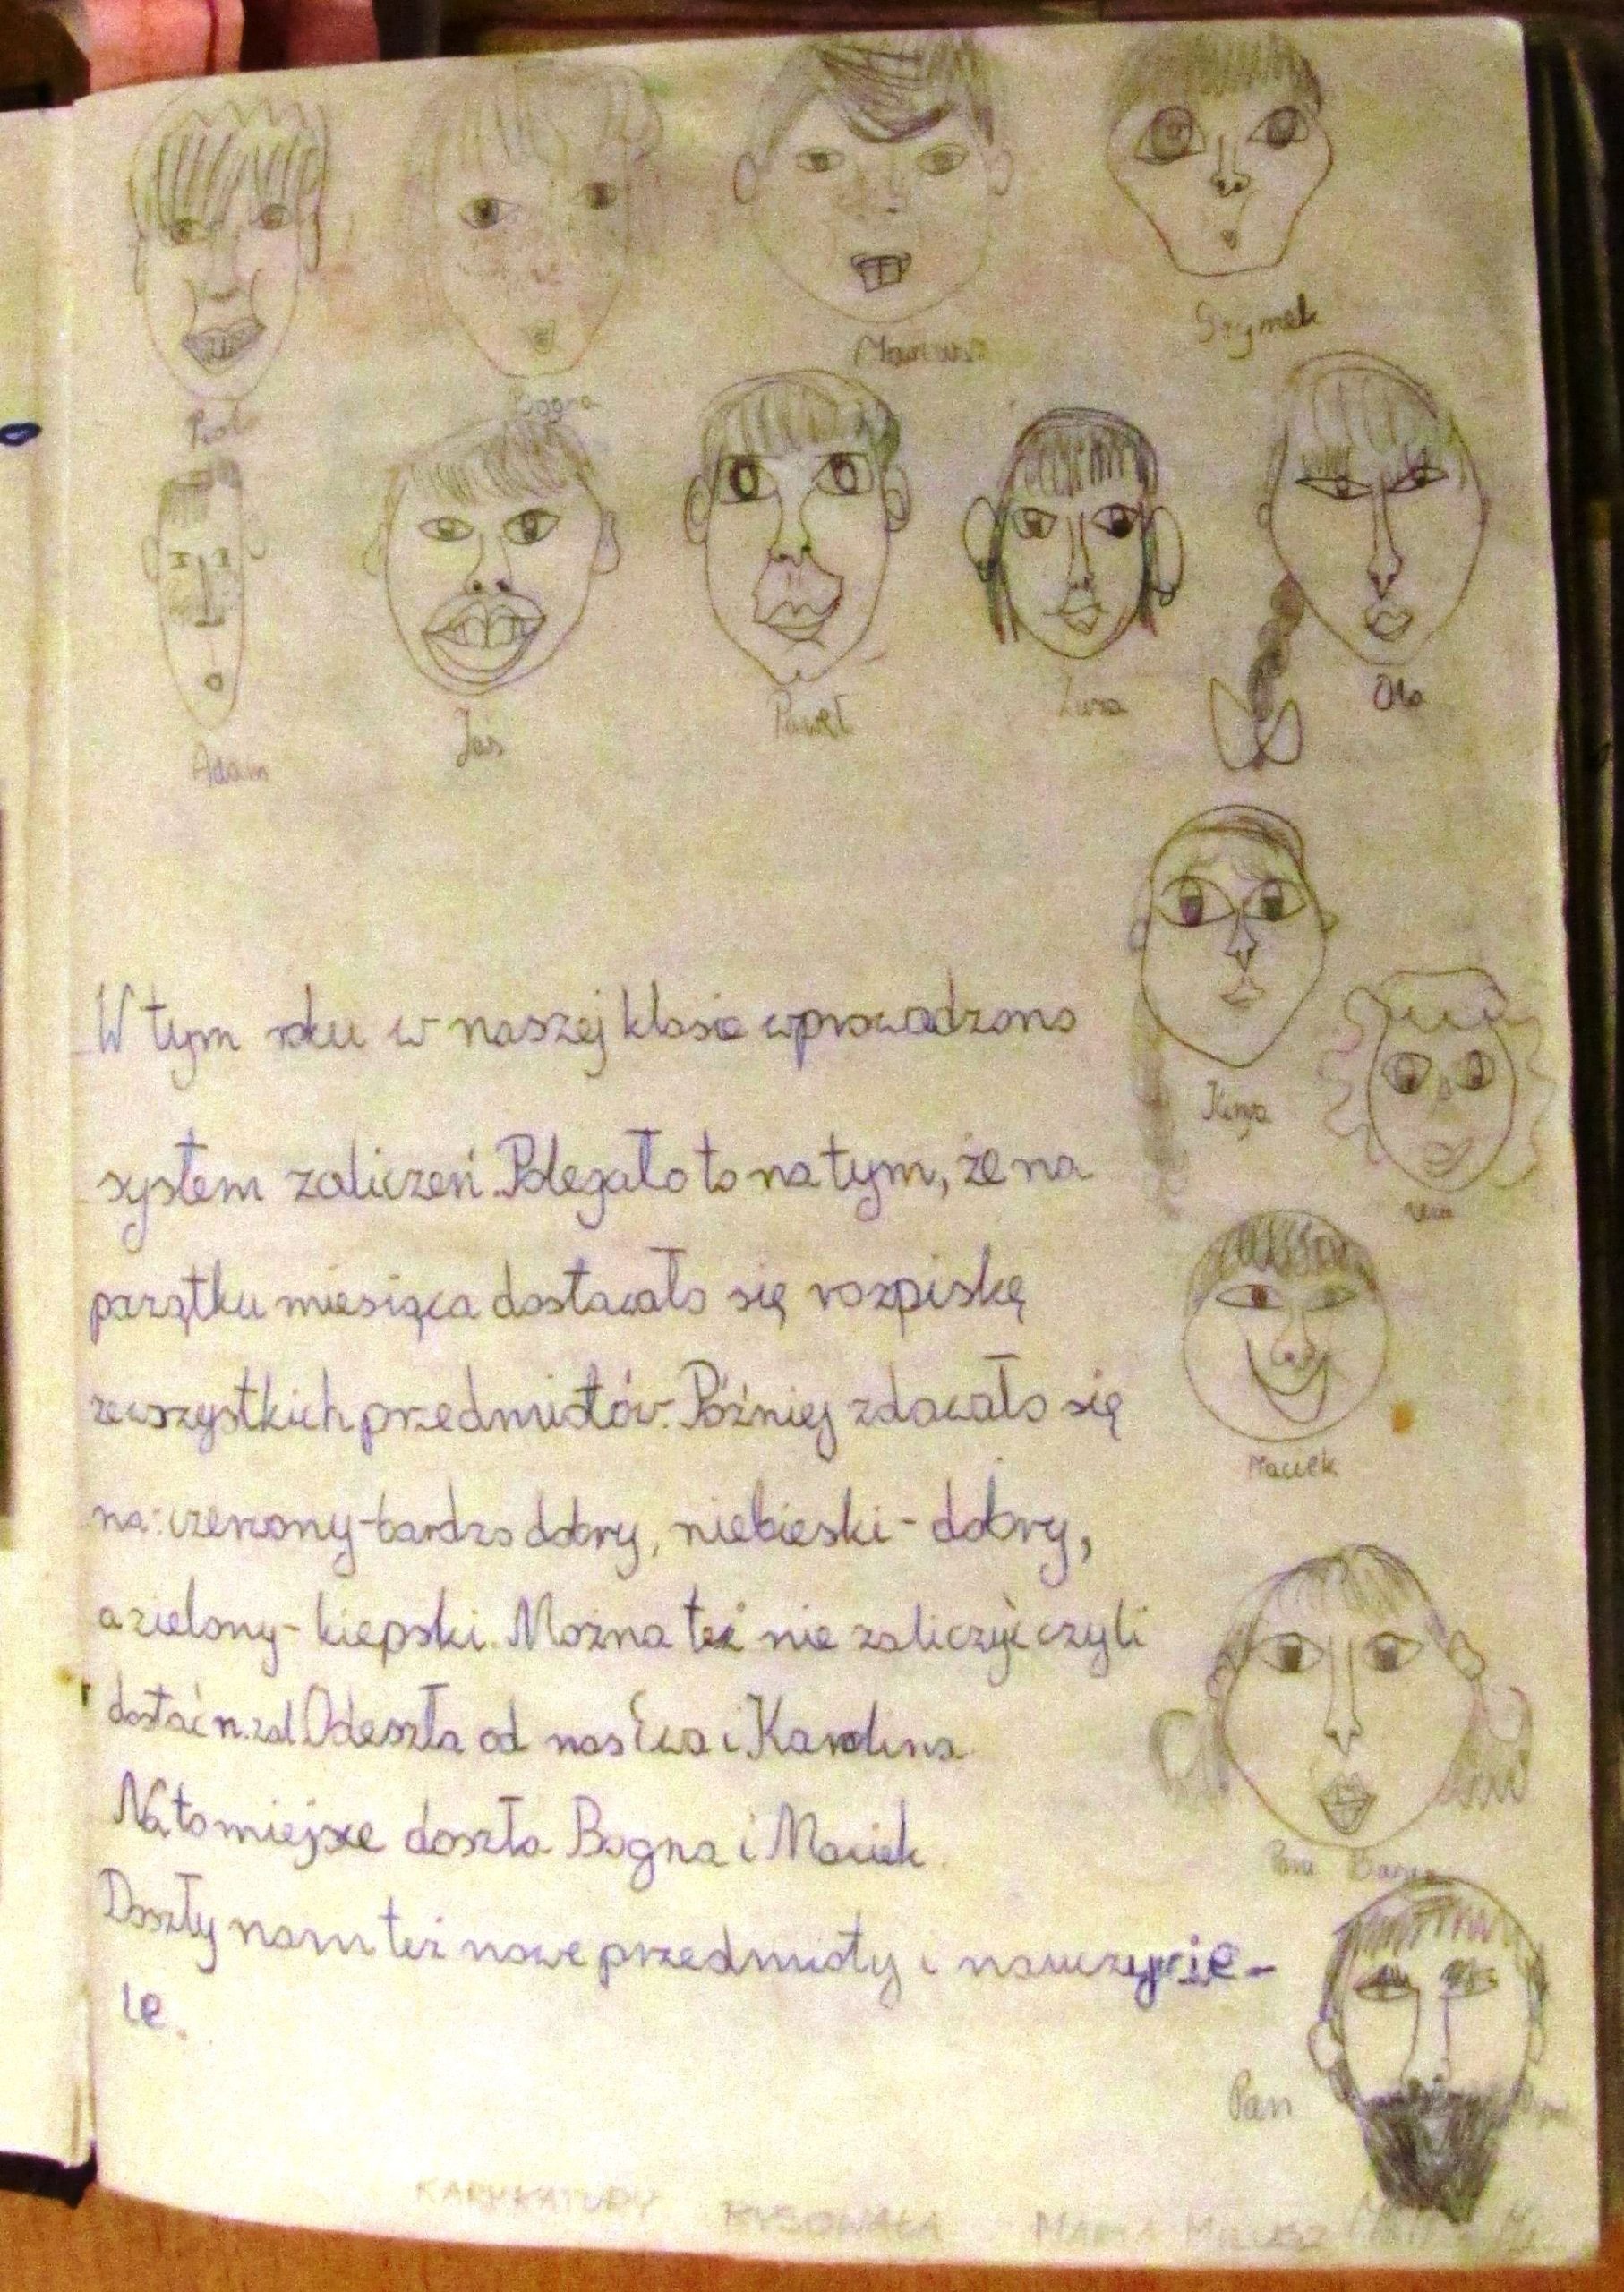 Bogna
Mariusz
Szymek
Adam
Jaś
Paweł
Zuza
Ola
Kinga
Maciek
Pani Basia
Pan
W tym roku w naszej klasie wprowadzono
system zaliczeń. Polegało to na tym, że na
początku miesiąca dostawało się rozpiskę
ze wszystkich przedmiotów. Później zdawało się
na: czerwony - bardzo dobry, niebieski - dobry,
a zielony - kiepski. Można też nie zaliczyć czyli
dostać n.zal Odeszła od nas Ewa i Karolina.
Na to miejsce doszła Bogna i Maciek.
Doszły nam też nowe przedmioty i nauczycie-
le.
KARYKATURY RYSOWAŁA MARIA